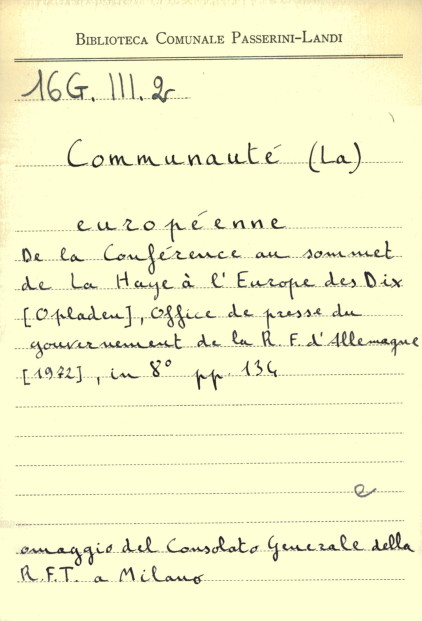 BIBLIOTECA COMUNALE PASSERINI-LANDI
16G. III. 2
Communauté (La)
européenne
De la Conférence au sommet
de La Haye à l'Europe des Dix
[Opladen], Office de presse du
gouvernement de la R. F. d'Allemagne
[1972], in 8° pp. 134
e
omaggio del Consolato Generale della
R.F.T. a Milano